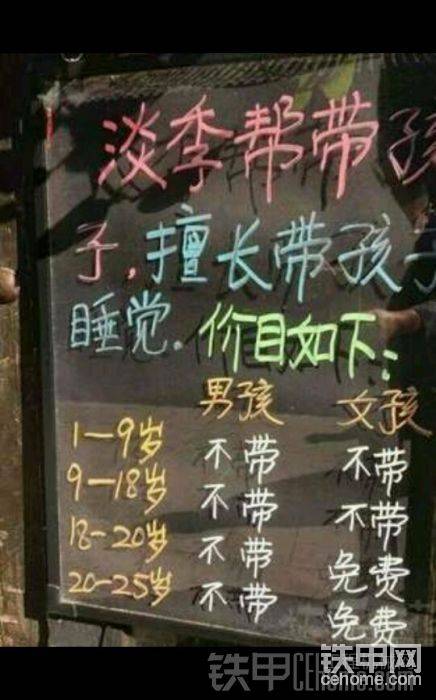 淡季帮带孩
子,擅长带孩子
睡觉.价目如下:
男孩 女孩
1-9岁 不带 不带
9-18岁 不带 不带
18-20岁 不带 免费
20-25岁 不带 免费
铁甲网
cehome.com
铁甲CEHOME.COM